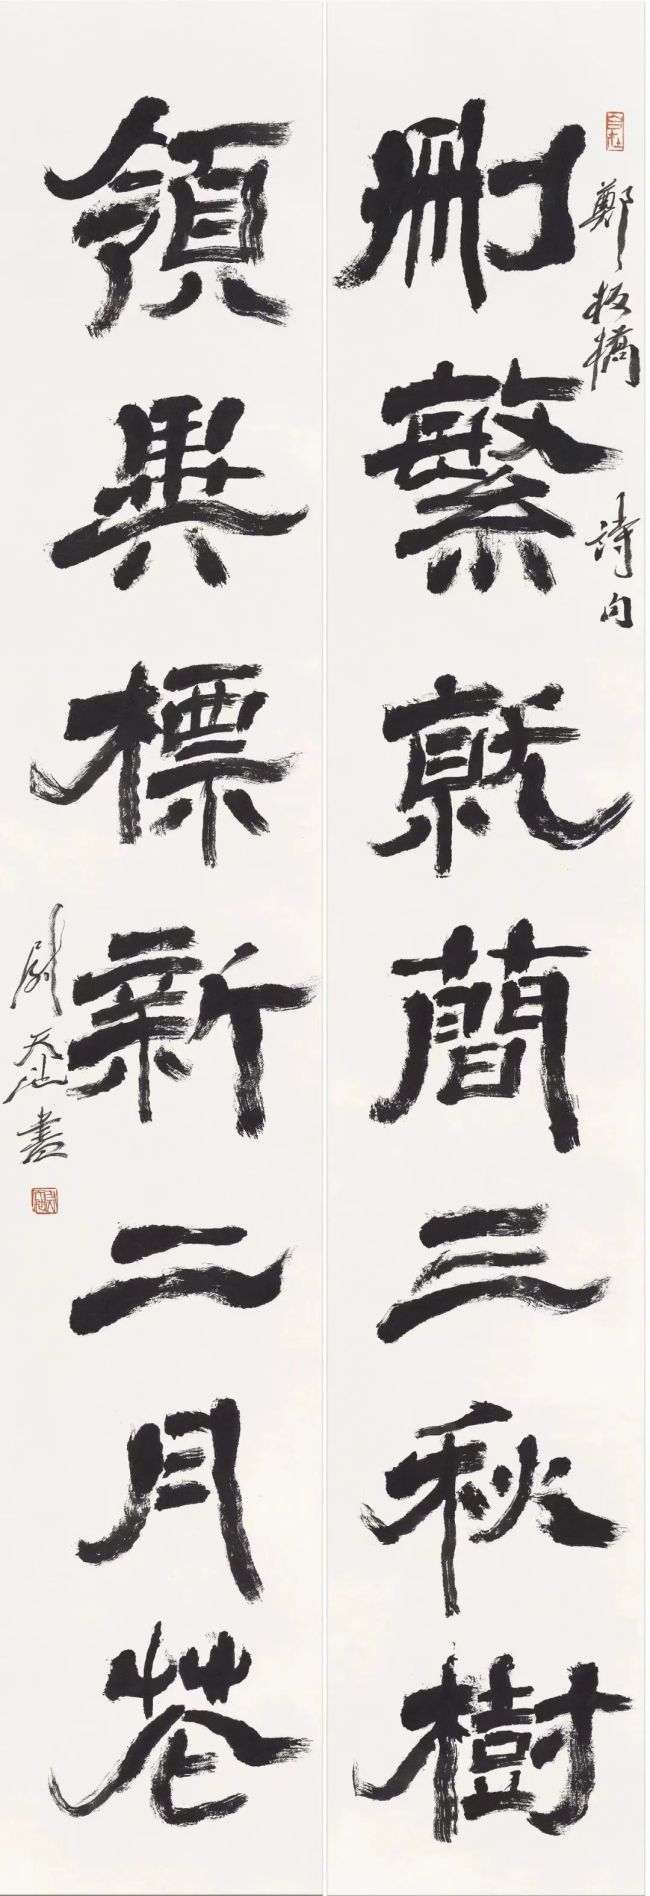 鄭板橋詩句
刪繁就簡三秋樹
領異標新二月花
尉天池書